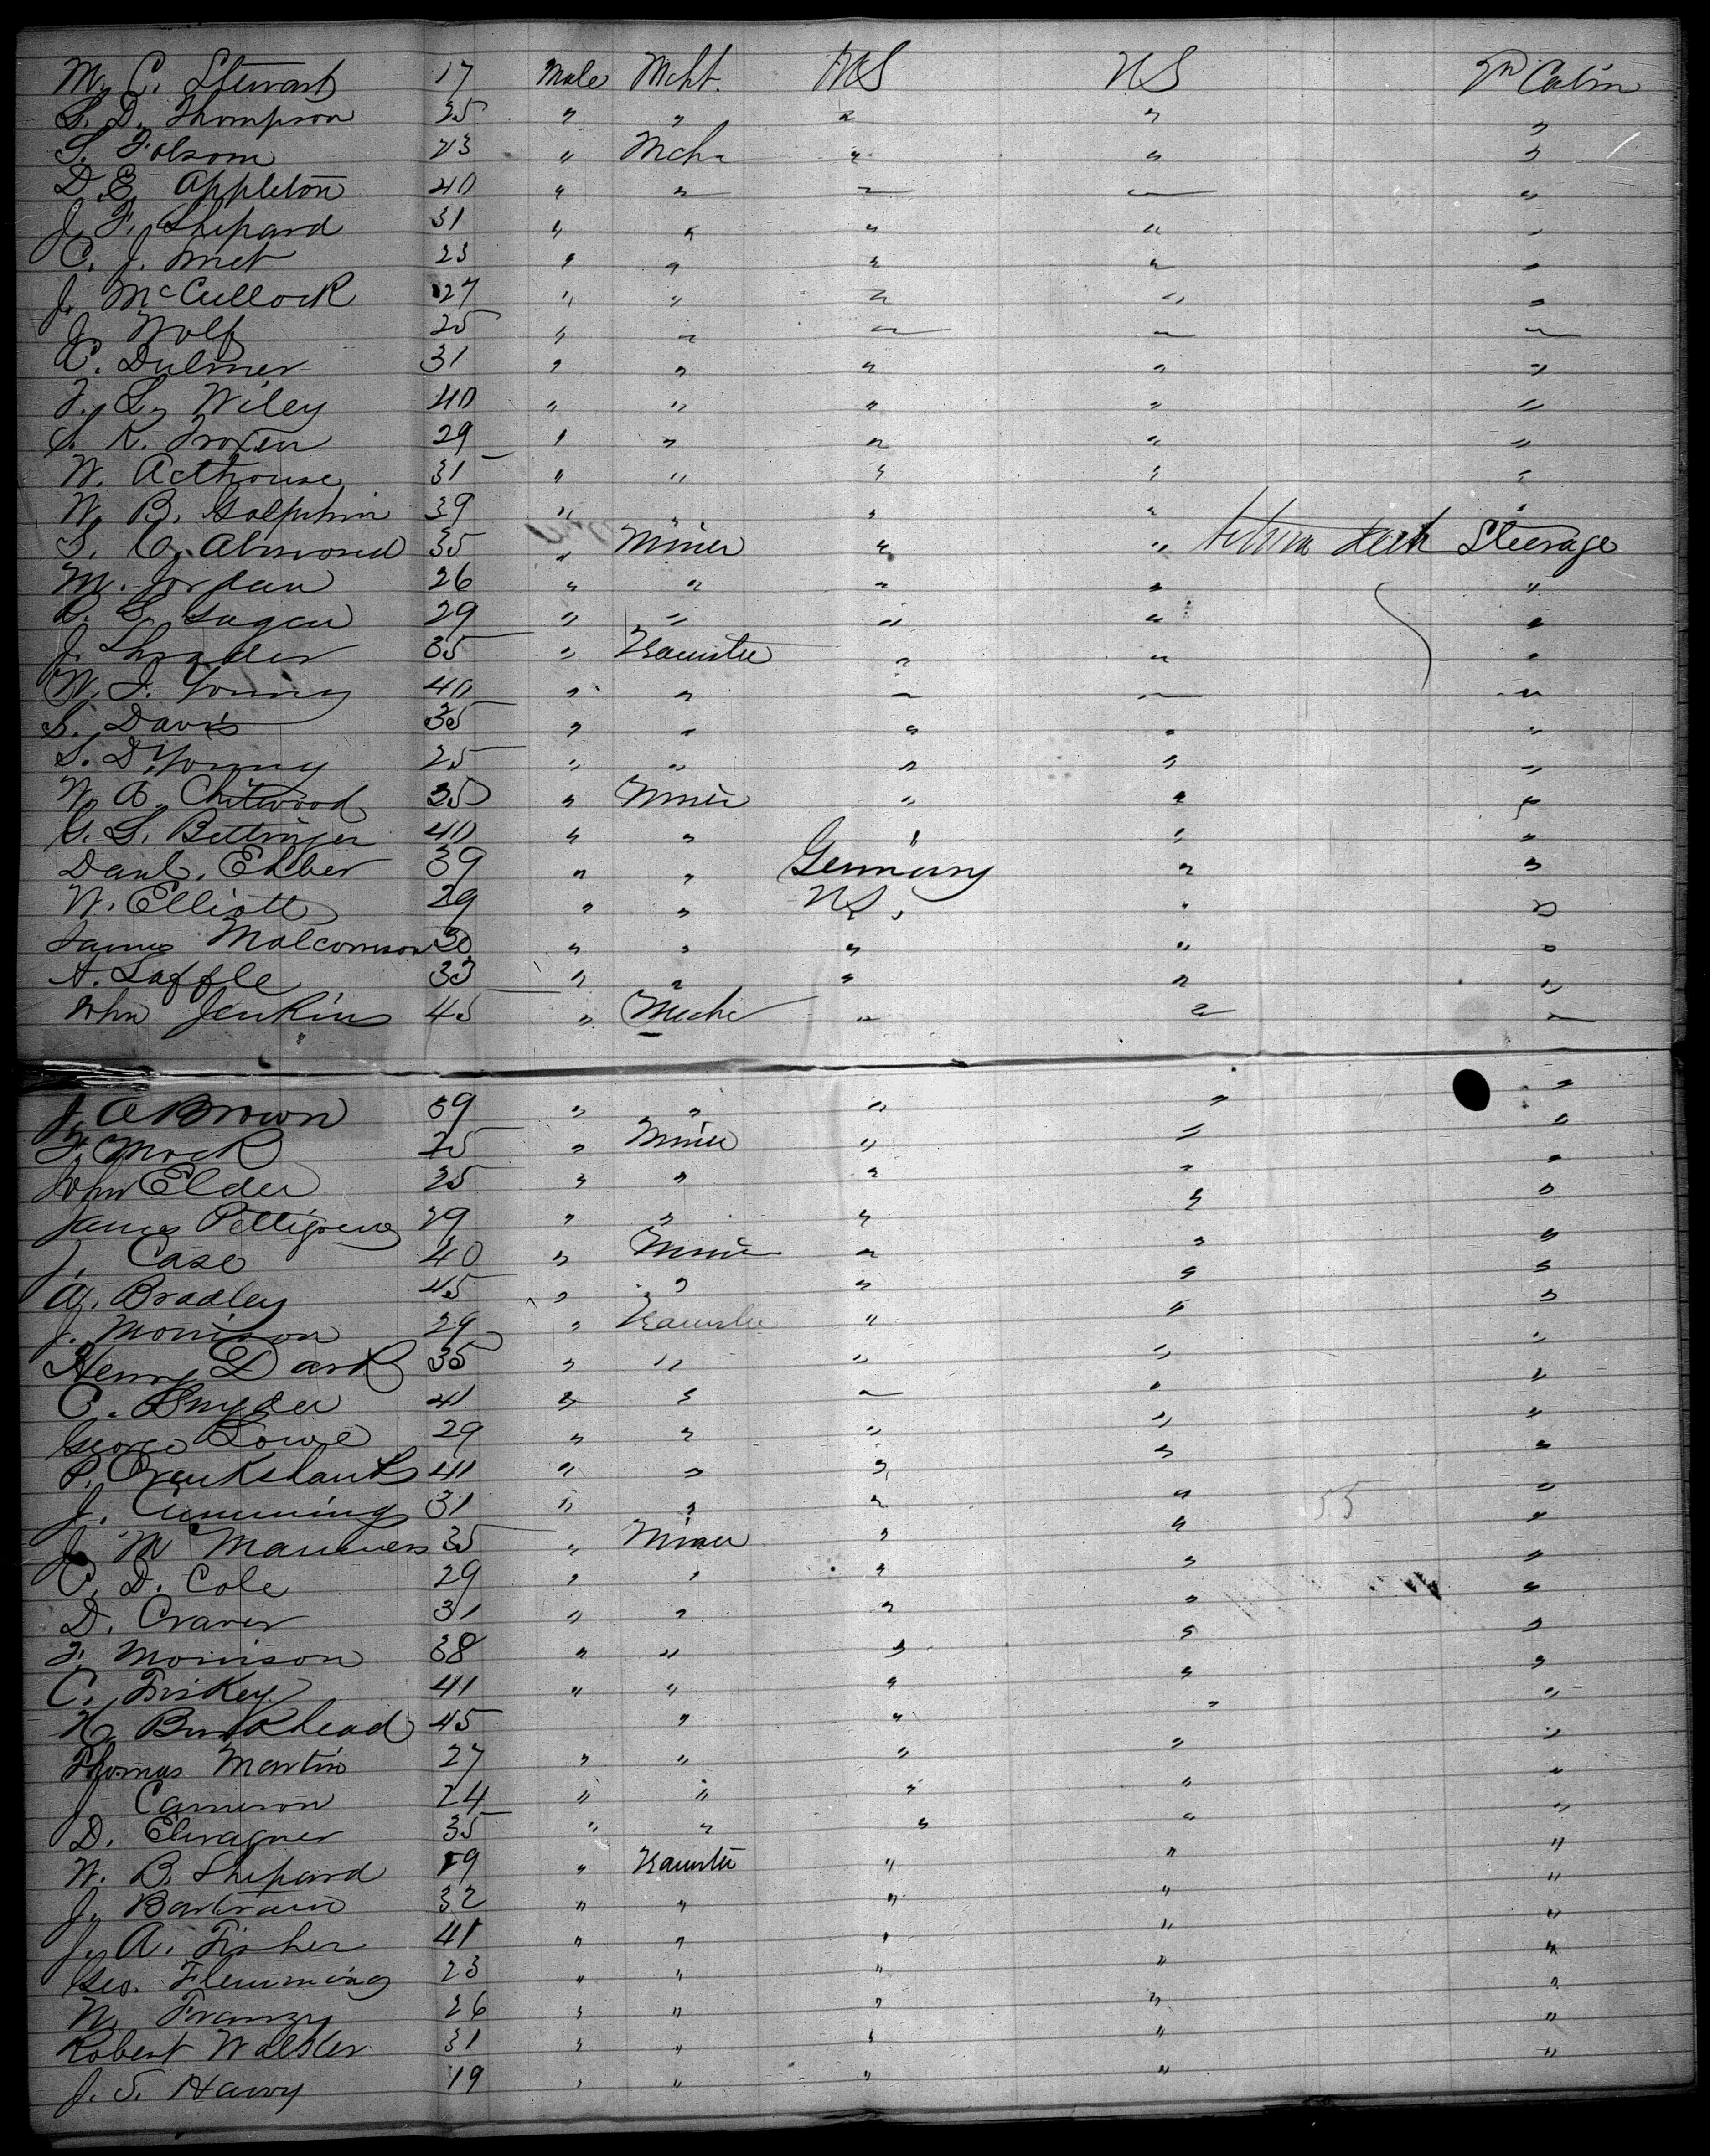 M. C. Stewart 17 Male Mcht. US US Cabin
S. D. Thompson 25 " " " " "
S. Folsom 23 " Mch " " "
D. E. Appleton 40 " " " " "
J. F. Shepard 31 " " " " "
C. J. 23 " " " " "
J. McCullock 27 " " " " "
J. Wolf 25 " " " " "
C. Dulmer 31 " " " " "
F. L. Wiley 40 " " " " "
S. K. Troxen 29 " " " " "
W. Acthouse 31 " " " " "
W. B. Golphin 39 " " " " "
S. C. Almond 35 " Miner " " Steerage
M. Jordan 26 " " " " "
29 " " " " "
J. Shrader 35 " " " "
W. J. Young 40 " " " " "
S. Davis 35 " " " " "
S. D. Young 25 " " " " "
W. A. Chitwood 35 " Miner " " "
G. S. Bettinger 40 " " " " "
Danl. Ehber 39 " " Germany " "
W. Elliott 29 " " US. " "
James Malcomson 30 " " " " "
A. Laffle 33 " " " " "
John Jenkins 45 " Mech " " "
J. A Brown 39 " " " " "
F. Mock 25 " Miner " " "
John Elder 25 " " " " "
James Pettigrew 29 " " " " "
J. Case 40 " Miner " " "
A. Bradley 45 " " " " "
J. Morrison 29 " " " "
Henry Dark 35 " " " " "
C. Snyder 41 " " " " "
George Lowe 29 " " " " "
P. Crankshank 41 " " " " "
J. Cumming 31 " " " 55 "
J. M Manners 35 " Miner " " "
C. D. Cole 29 " " " " "
D. Craver 31 " " " " "
F. Morrison 38 " " " " "
C. Friskey 41 " " " " "
Burkhead 45 " " " "
Thomas Martin 27 " " " " "
J Cameron 24 " " " " "
D. Elwagner 35 " " " " "
W. B. Shepard 19 " " " "
J. Bartram 32 " " " " "
J. A. Fisher 41 " " " " "
Geo. Flemming 23 " " " " "
W. Franzy 26 " " " " "
Robert Walsker 31 " " " " "
J. S. Harvy 19 " " " " "